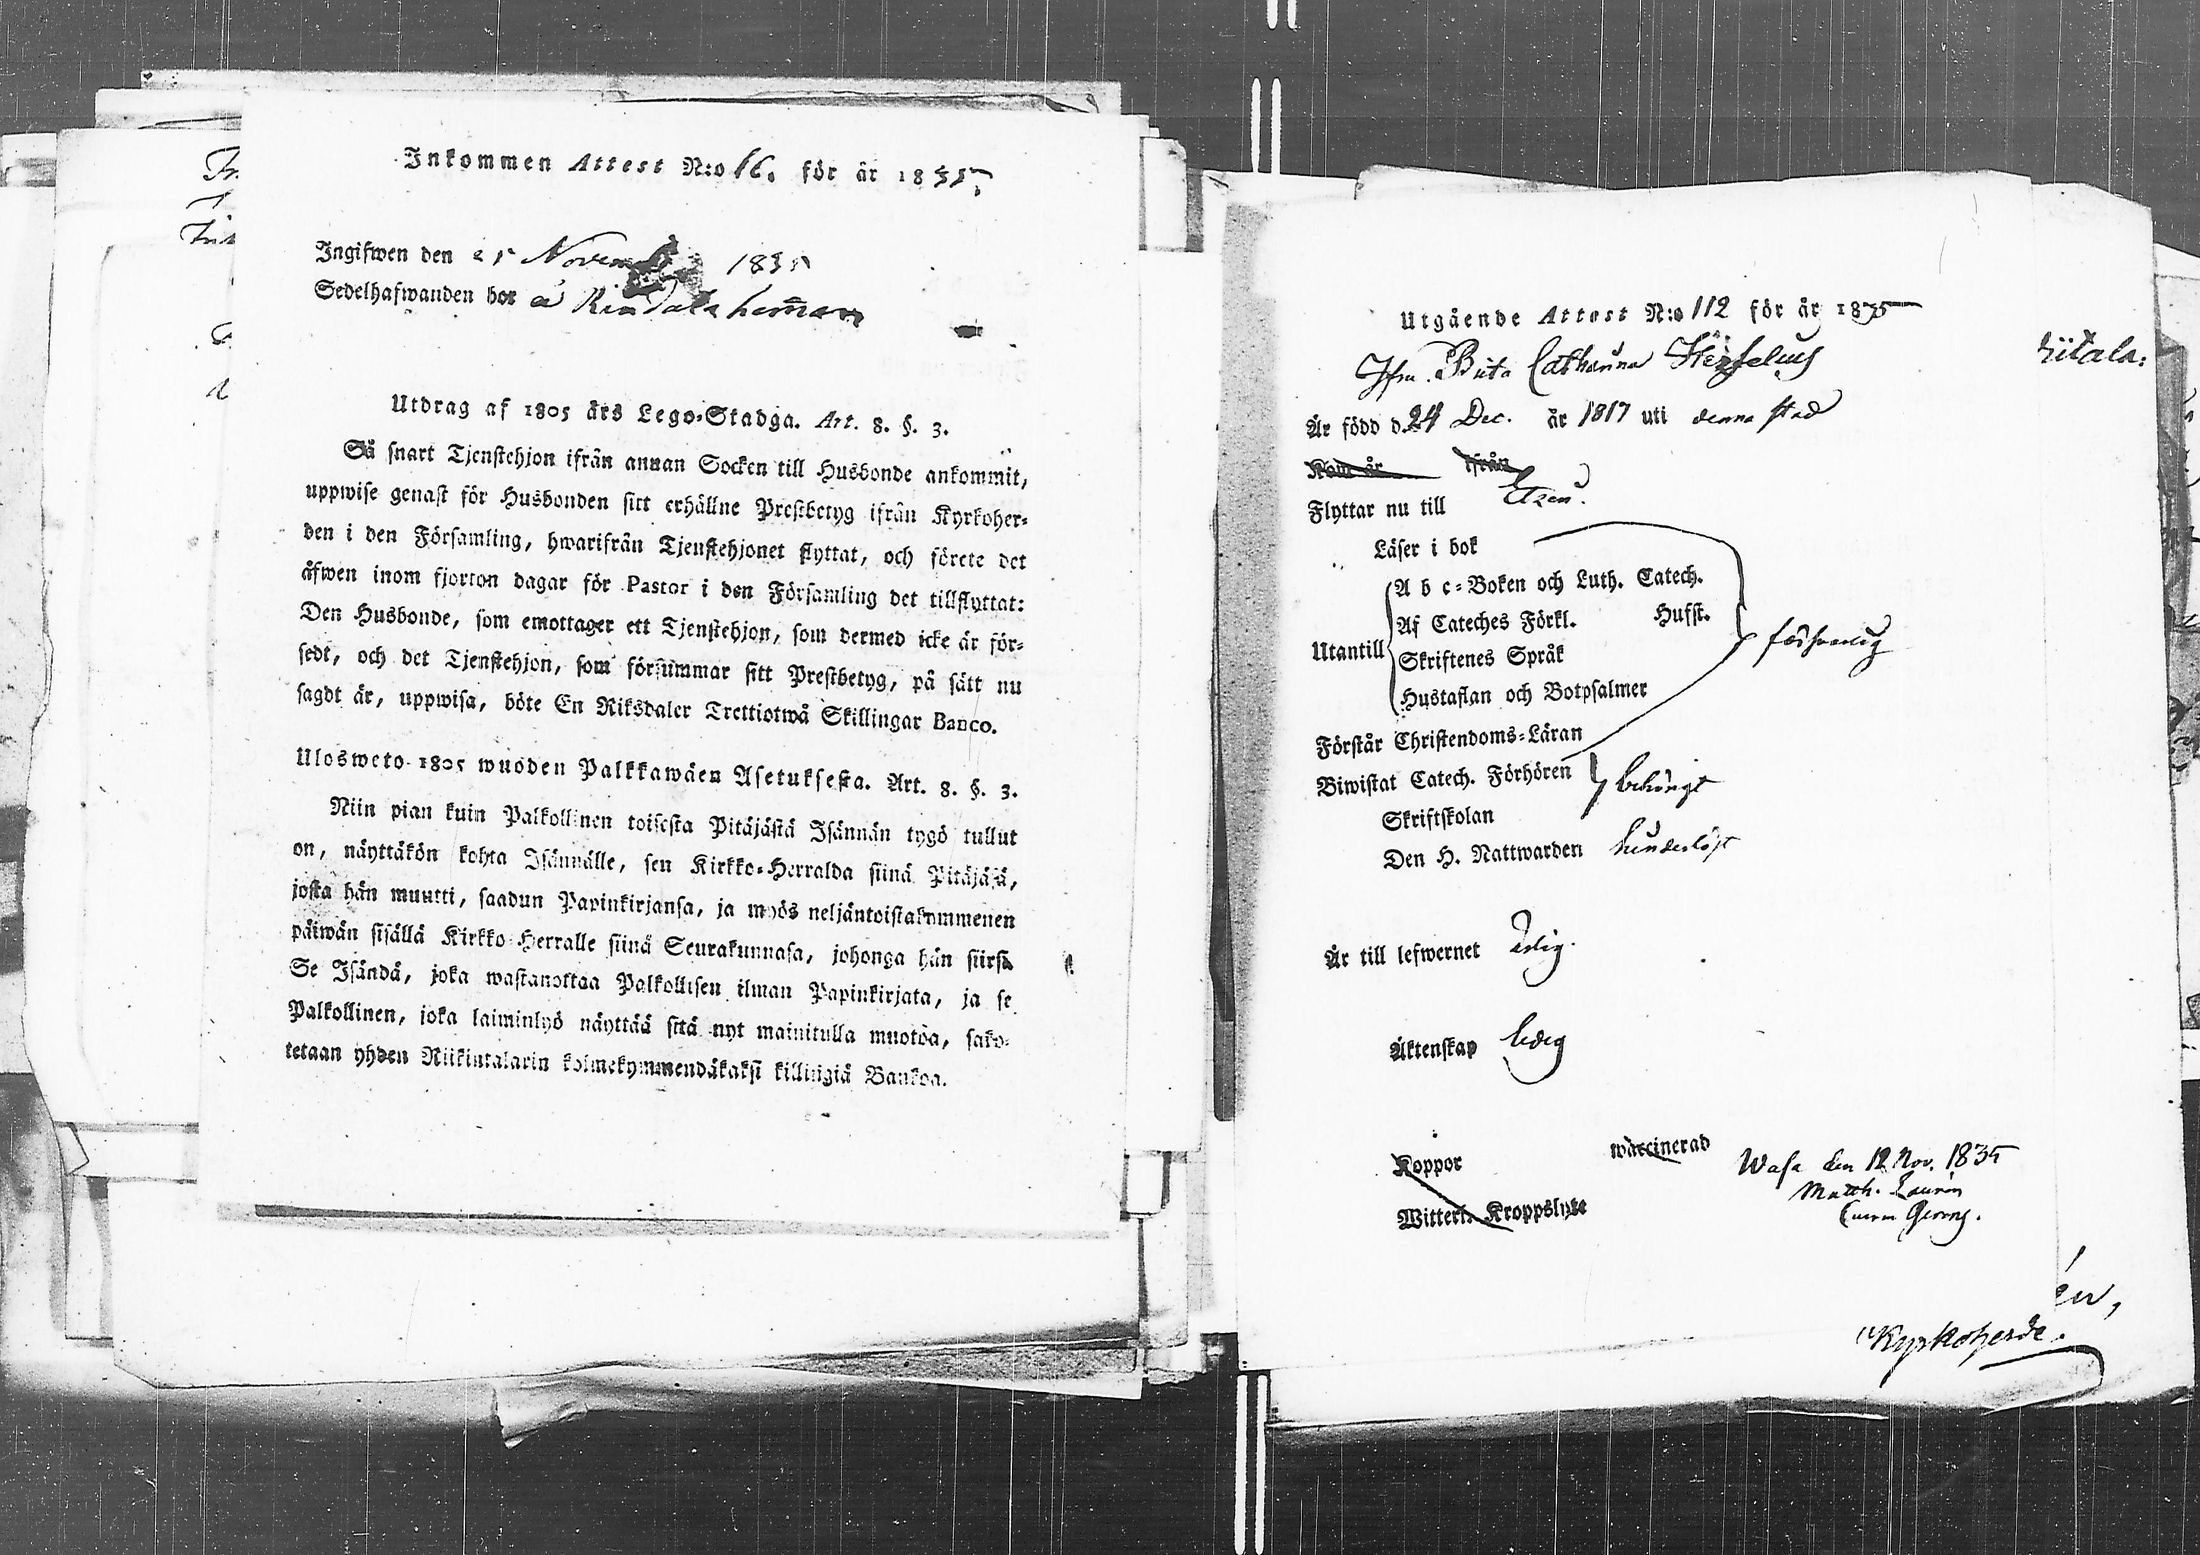 Inkommen Attest N:o 16. för år 1835.
Ingifwen den 25 November 1835
Sedelhafwanden bor å Rindala heman
Utdrag af 1805 års Lego-Stadga. Art. 8. §. 3.
Så snart Tjenstehjon ifrån annan Socken till Husbonde ankommit,
uppwise genast för Husbonden sitt erhållne Prestbetyg ifrån Kyrkoher-
den i den Församling, hwarifrån Tjenstehjonet flyttat, och förete det
äfwen inom fjorton dagar för Pastor i den Församling det tillflyttat:
Den Husbonde, som emottager ett Tjenstehjon, som dermed icke är för-
sedt, och det Tjenstehjon, som försummar sitt Prestbetyg, på sätt nu
sagdt är, uppwisa, böte En Riksdaler Trettiotwå Skillingar Banco.
Ulosweto 1805 wuoden Palkkawäen Asetuksesta. Art. 8. §. 3.
Niin pian kuin Palkollinen toisesta Pitäjästä Isännän tygö tullut
on, näyttäkön kohta Isännälle, sen Kirkko-Herralda siinä Pitäjäsä,
josta hän muutti, saadun Papinkirjansa, ja myös neljäntoistakymmenen
päiwän sisällä Kirkko-Herralle siinä Seurakunnasa, johonga hän siirsä
Se Isändä, joka wastanottaa Palkollisen ilman Papinkirjata, ja se
Palkollinen, joka laiminlyö näyttää sitä nyt mainitulla muotoa, sako-
tetaan yhden Riikintalarin kolmekymmendäkaksi killingiä Bankoa.
Utgående Attest N:o 112 för år 1835
Jfru. Brita Catharina
Är född d. 24 Dec. år 1817 uti denna stad
Kom år ifrån
Flyttar nu till
Läser i bok
A b c-Boken och Luth. Catech.
Af Cateches Förkl. Hufst.
Utantill
Skriftenes Språk
Hustaflan och Botpsalmer
försvarlig
Förstår Christendoms-Läran
Biwistat Catech. Förhören
behörigt
Skriftskolan
Den H. Nattwarden hinderlöst
Är till lefwernet ärlig.
Äktenskap ledig
Koppor waccinerad
Witterl. Kroppslyte
Wasa den 12 Nov. 1835
Matth. Laurén
Kyrkoherde.